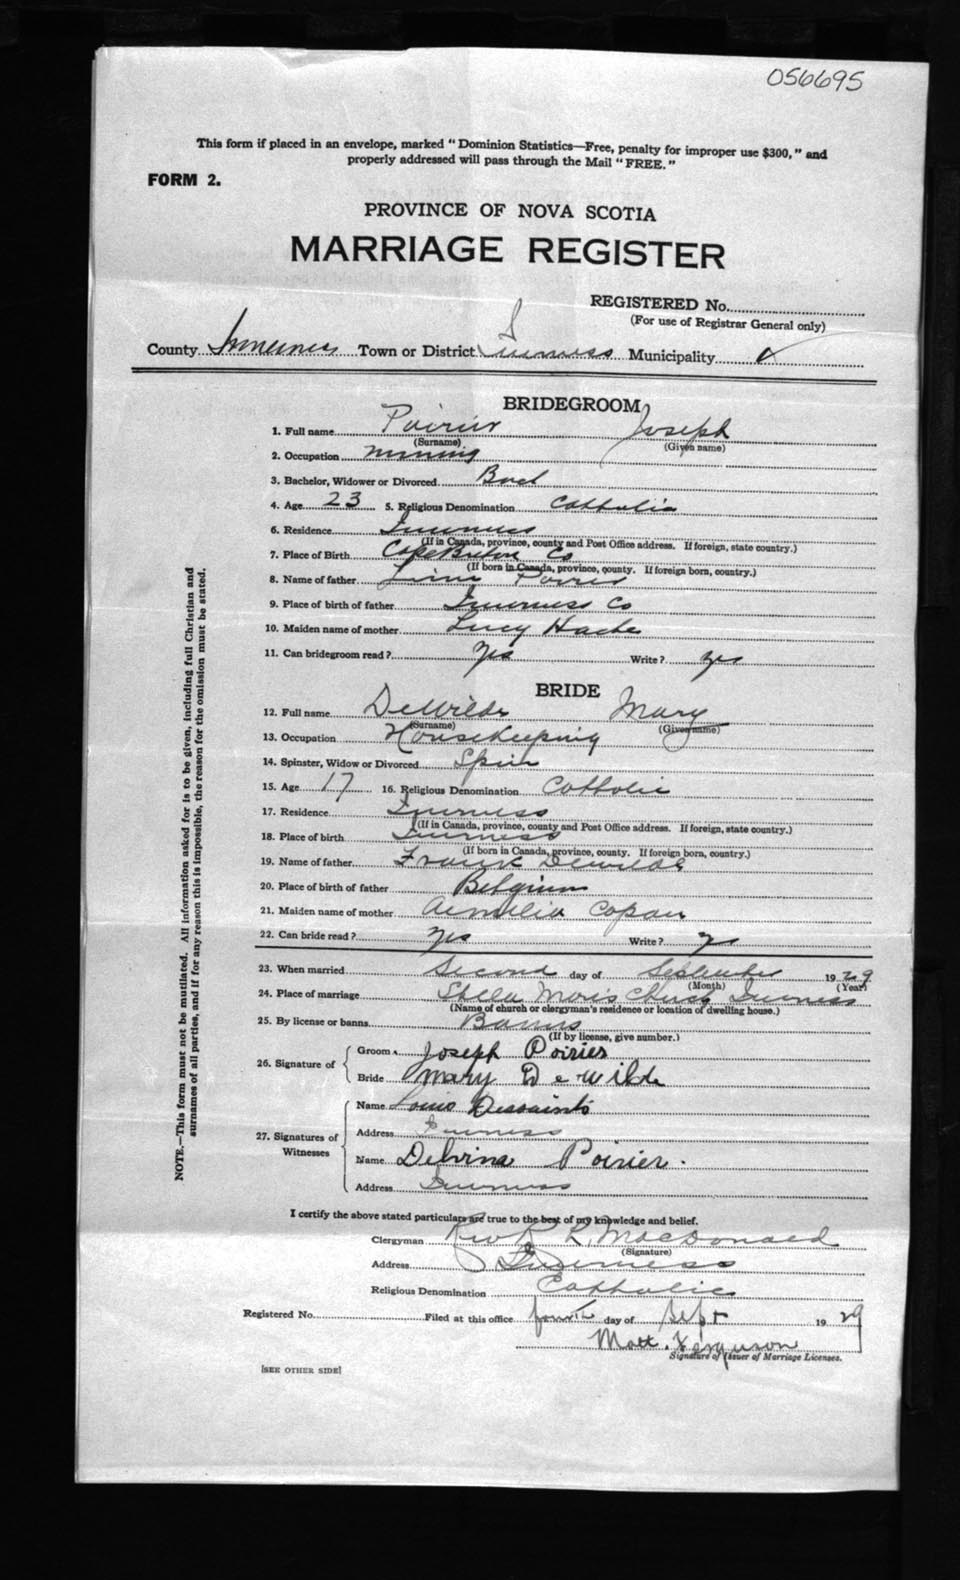 056695
This form if placed in an envelope, marked "Dominion Statistics—Free, penalty for improper use $300," and
properly addressed will pass through the Mail "FREE."
FORM 2.
PROVINCE OF NOVA SCOTIA
MARRIAGE REGISTER
REGISTERED No.
(For use of Registrar General only)
County Inverness Town or District Inverness Municipality
BRIDEGROOM
1. Full name Poirier Joseph
(Surname) (Given name)
2. Occupation mining
3. Bachelor, Widower or Divorced Bach
4. Age 23 5. Religious Denomination Catholic
6. Residence Inverness
(If in Canada, province, county and Post Office address. If foreign, state country.)
7. Place of Birth Cape Breton Co
(If born in Canada, province, county. If foreign born, country.)
8. Name of father Poirier
9. Place of birth of father Inverness Co
10. Maiden name of mother Lucy Hache
11. Can bridegroom read? yes Write? yes
BRIDE
12. Full name DeWilde Mary
(Surname) (Given name)
13. Occupation Housekeeping
14. Spinster, Widow or Divorced Spin
15. Age 17 16. Religious Denomination Catholic
17. Residence Inverness
(If in Canada, province, county and Post Office address. If foreign, state country.)
18. Place of birth Inverness
(If born in Canada, province, county. If foreign born, country.)
19. Name of father Frank Dewilde
20. Place of birth of father Belgium
21. Maiden name of mother Copau
22. Can bride read? yes Write? yes
23. When married Second day of September 1929
(Month) (Year)
24. Place of marriage Stella Maris Church Inverness
(Name of church or clergyman's residence or location of dwelling house.)
25. By license or banns Banns
(If by license, give number.)
26. Signature of Groom Joseph Poirier
Bride Mary DeWilde
27. Signatures of Witnesses Name Louis Dessaints
Address Inverness
Name Delvina Poirier.
Address Inverness
I certify the above stated particulars are true to the best of my knowledge and belief.
Clergyman Rev R. L. MacDonald
(Signature)
Address Inverness
Religious Denomination Catholic
Registered No. Filed at this office fourth day of Sept 1929
Matt. Ferguson
Signature of Issuer of Marriage Licenses.
[SEE OTHER SIDE]
NOTE.—This form must not be mutilated. All information asked for is to be given, including full Christian and
surnames of all parties, and if for any reason this is impossible, the reason for the omission must be stated.